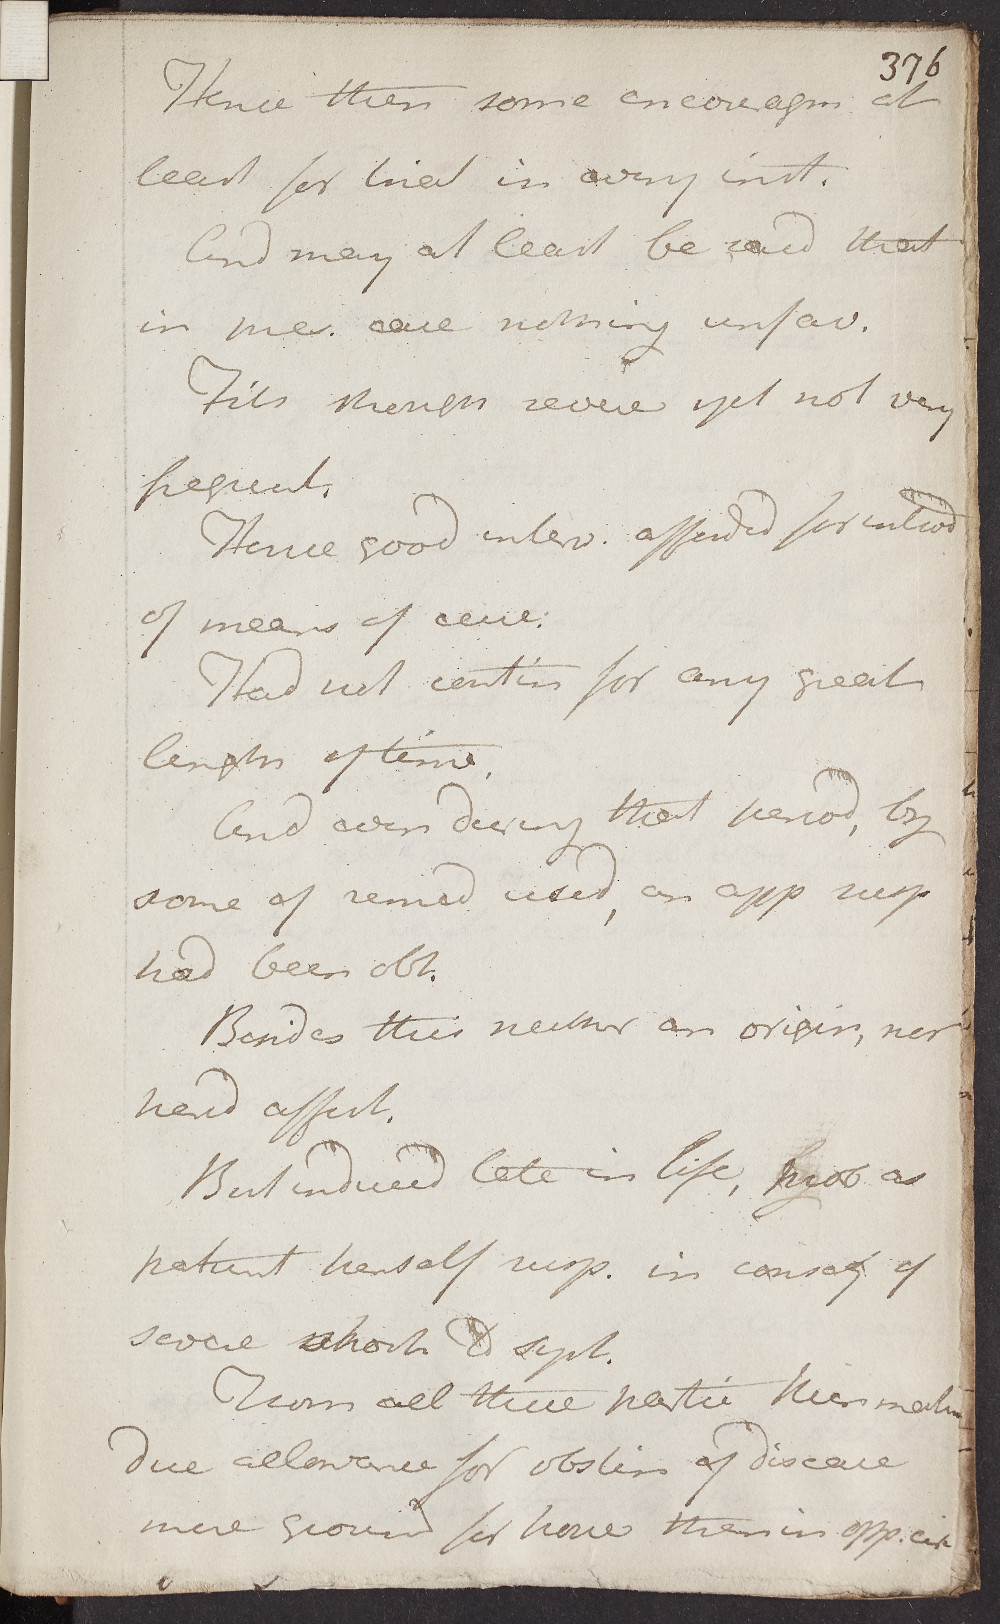 376
Hence then some encouragm at
least for trial in every inst.
And may at least be said that
in pres. case nothing unfav.
Fits though severe yet not very
frequent.
Hence good interv. afforded for introd
of means of cure.
Had not contin for any great
length of time,
And even during that period, by
some of remed used, an app resp
had been obt.
Besides this neither an origin, nor
hered affect.
But induced late in life, & as
patient herself susp. in conseq of
severe shock to syst.
From all these partic then makin
due allowance for obstin of disease
more ground for hope than in opp. cir